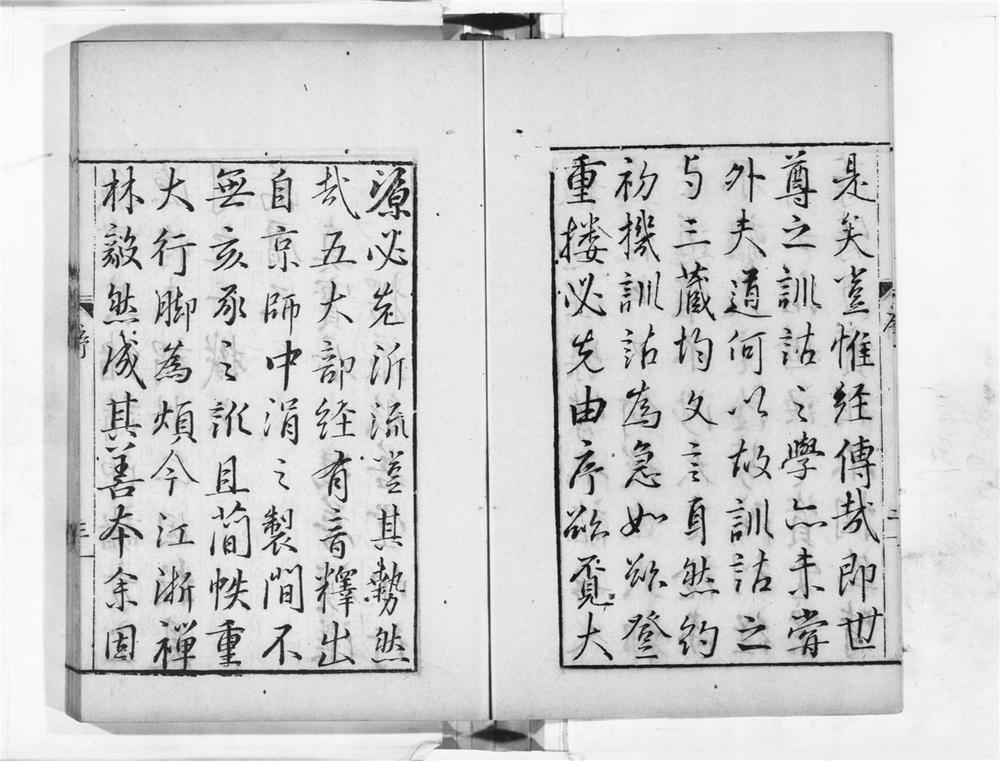 是矣豈惟経傳哉即世
尊之訓詁之學亦未甞
外夫道何以故訓詁之
与三蔵均文言身然约
初機訓詁為急如欲登
重楼必先由序欲覓大
源必先沂流豈其勢然
哉五大部経有音釋出
自京師中涓之製間不
無亥豕之訛且蕳帙重
大行脚為煩今江浙禅
林毅然成其善本余固
序
三